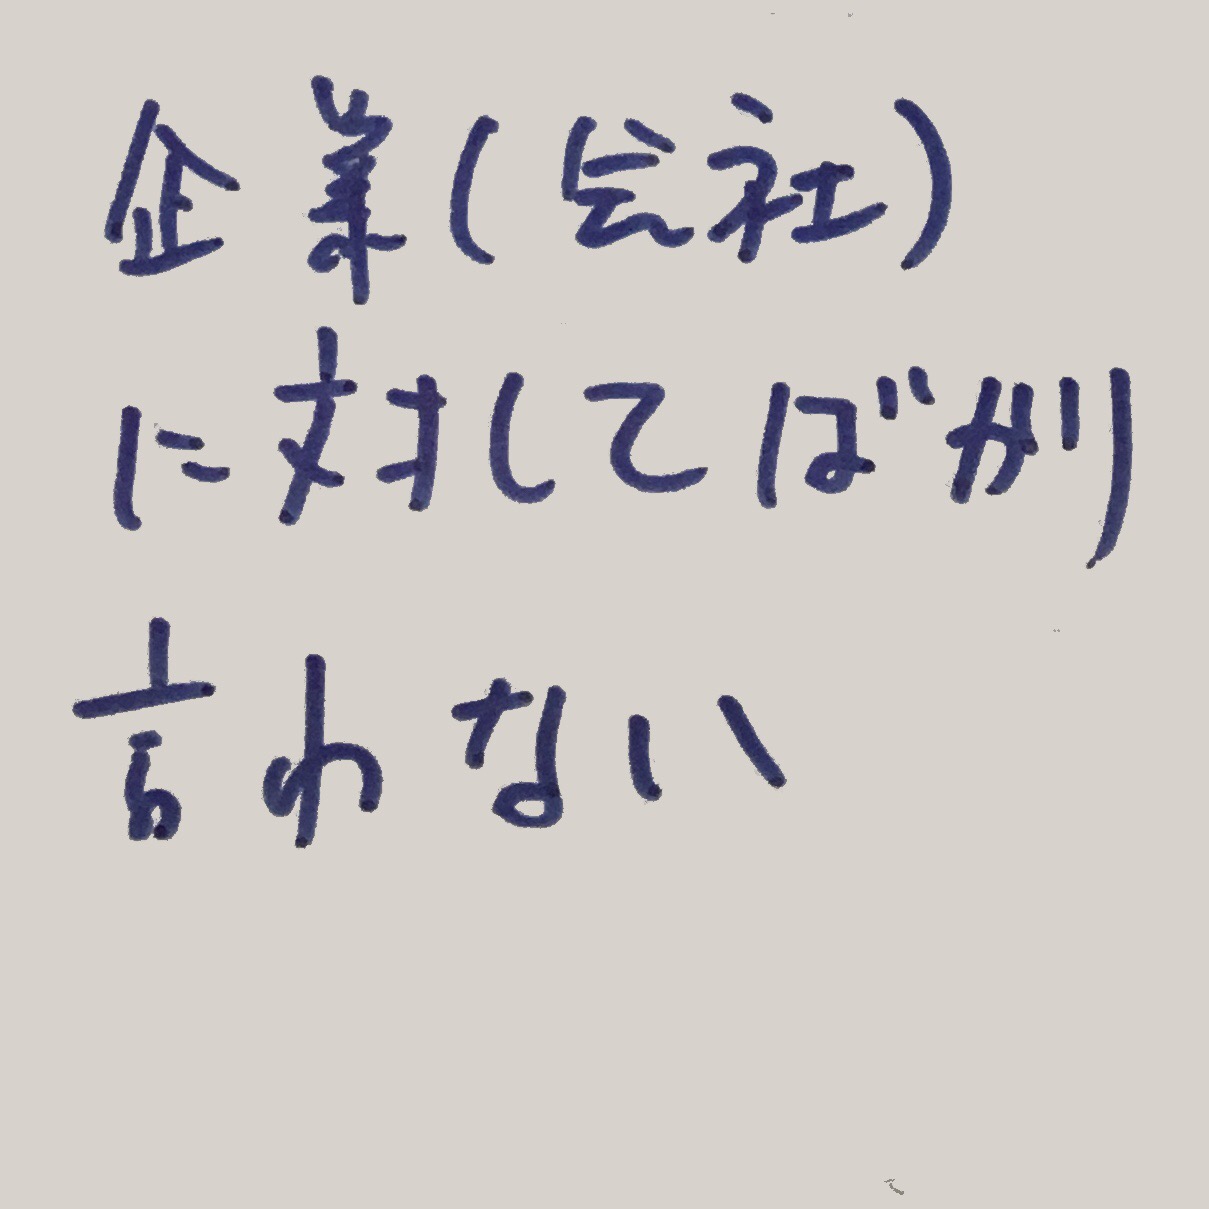 企業(会社)
に対してばかり
言わない